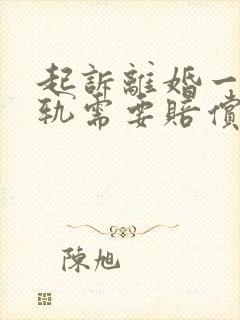 起訴離婚一
軌需要賠償
陳旭